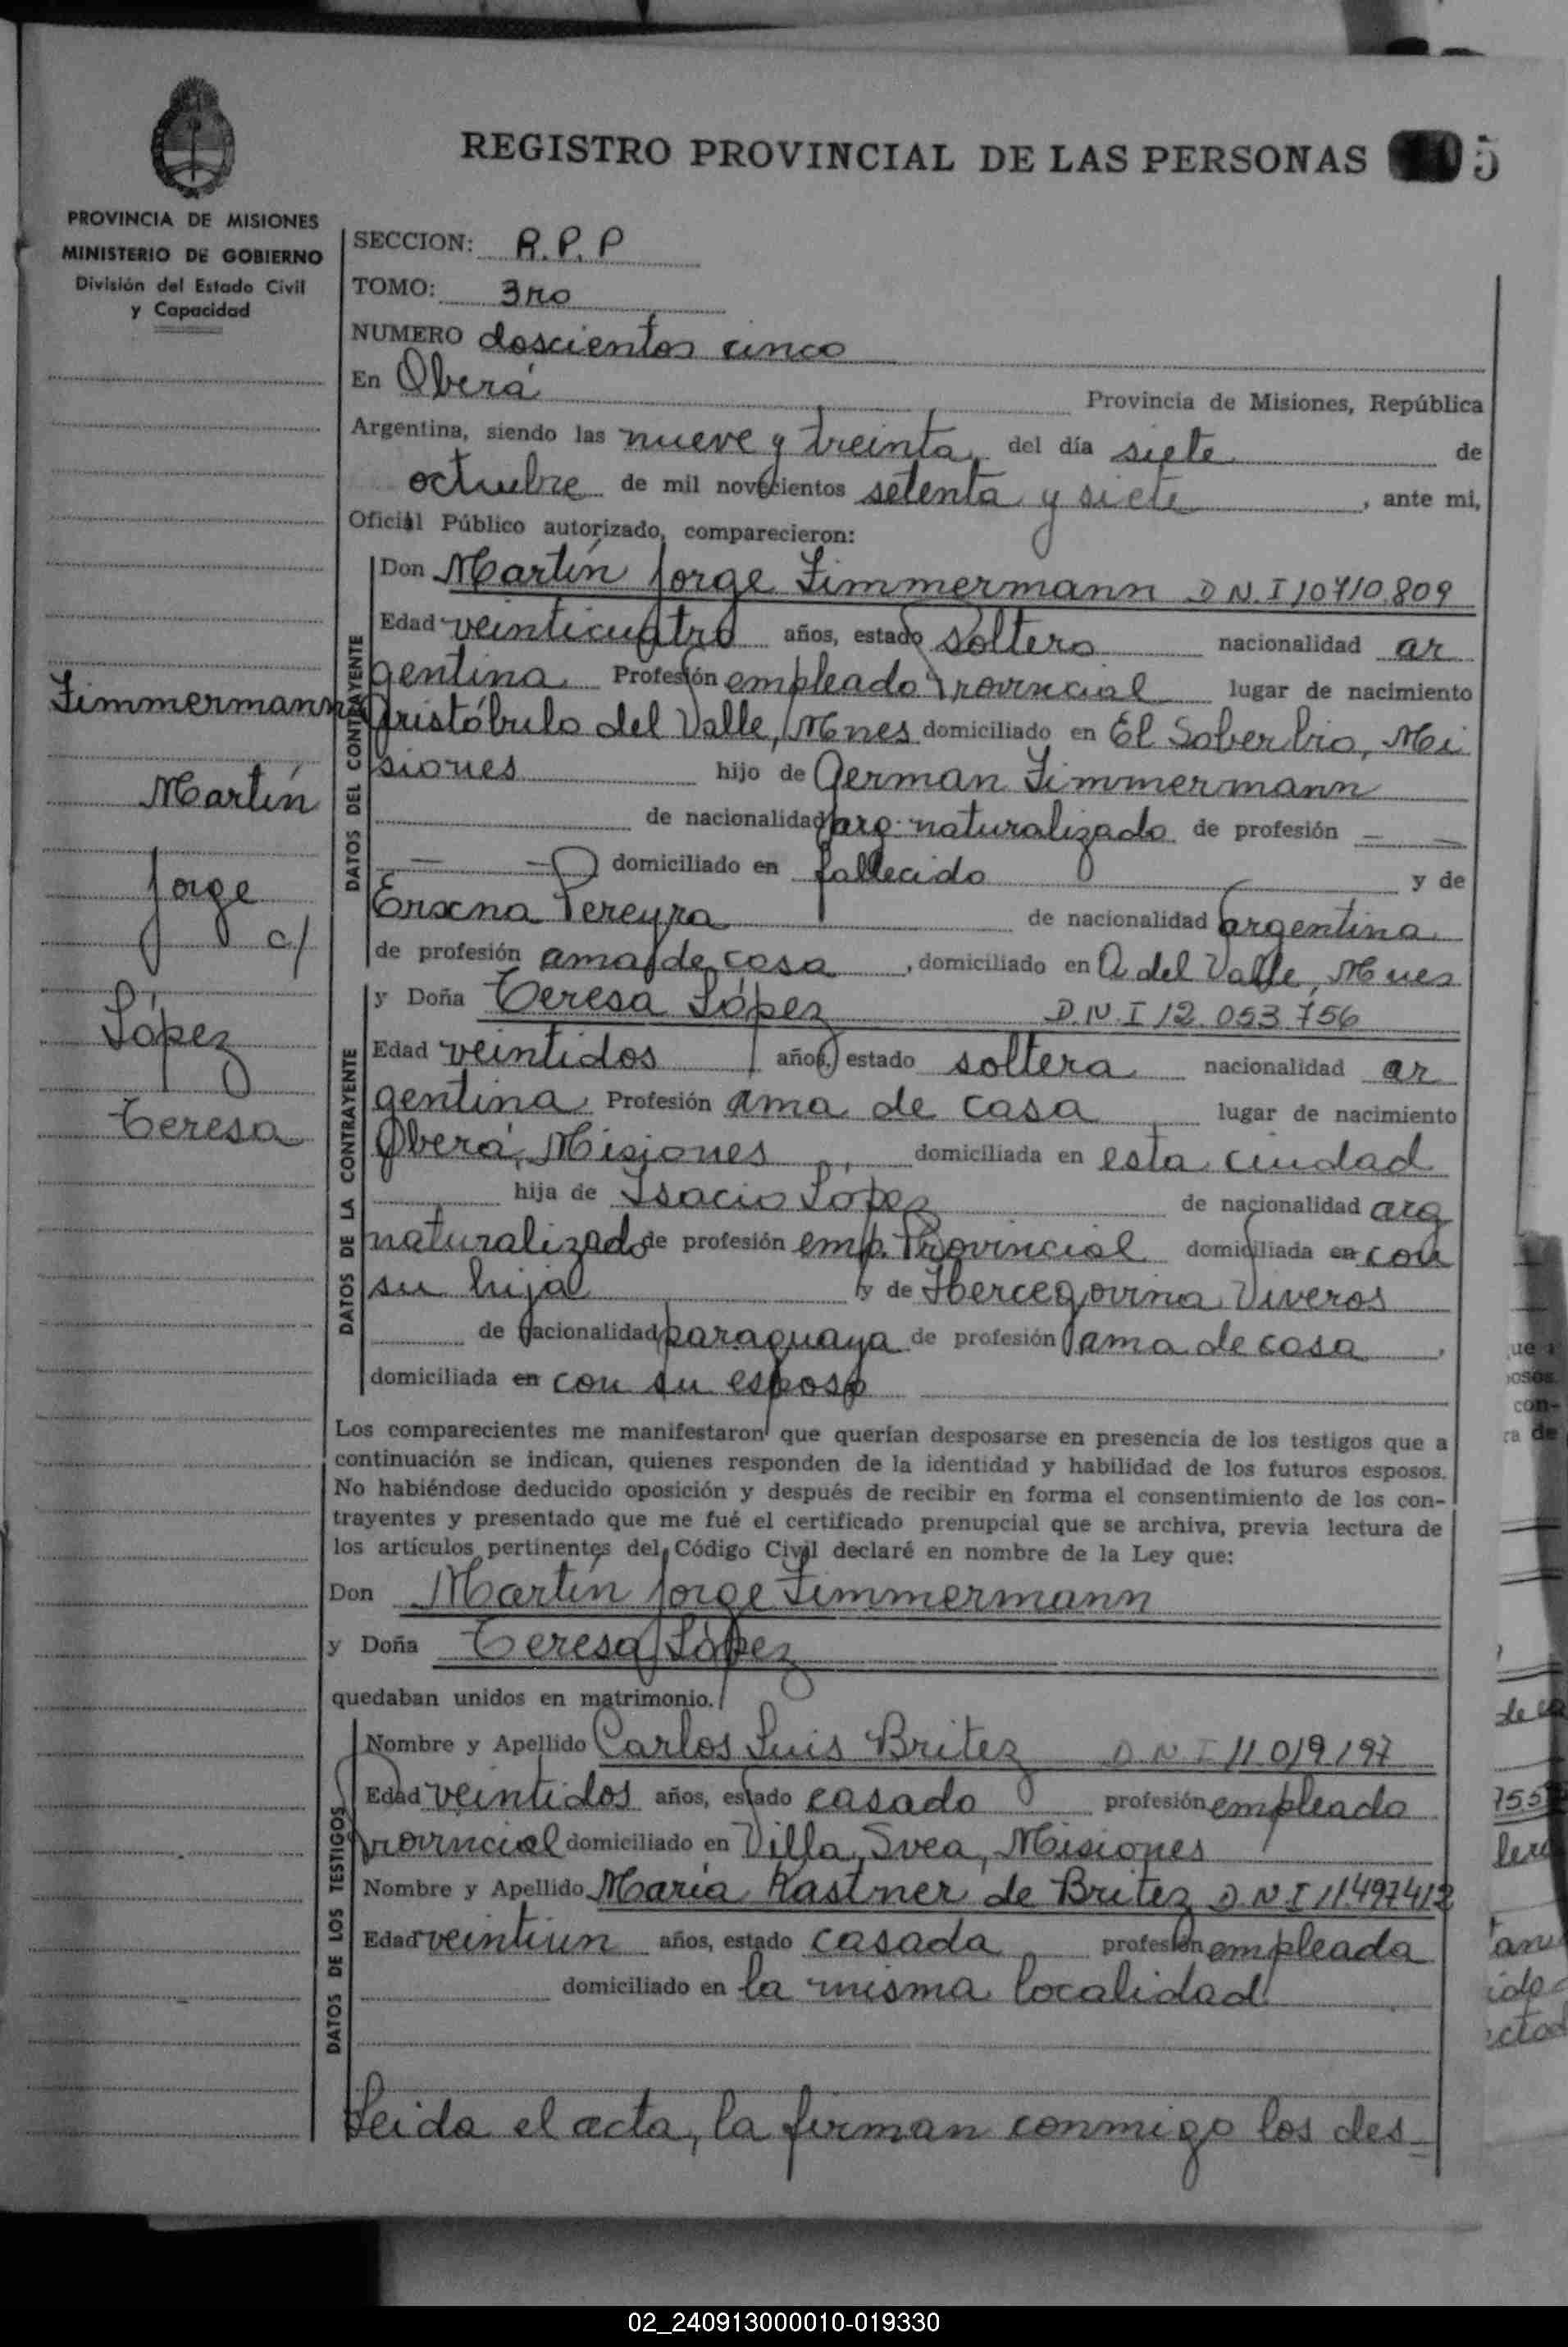 REGISTRO PROVINCIAL DE LAS PERSONAS 5
PROVINCIA DE MISIONES
MINISTERIO DE GOBIERNO
División del Estado Civil
y Capacidad
Zimmermann
Martín
Jorge
c/
López
Teresa
SECCION: R.P.P
TOMO: 3ro
NUMERO doscientos cinco
En Oberá Provincia de Misiones, República
Argentina, siendo las nueve y treinta del día siete de
octubre de mil novecientos setenta y siete, ante mi,
Oficial Público autorizado, comparecieron:
DATOS DEL CONTRAYENTE
Don Martín Jorge Zimmermann D.N.I 10710.809
Edad veinticuatro años, estado soltero nacionalidad ar
gentina Profesión empleado Provincial lugar de nacimiento
Aristóbulo del Valle, Mnes domiciliado en El Soberbio, Mi
siones hijo de German Zimmermann
de nacionalidad arg. naturalizado de profesión — —
— — domiciliado en fallecido y de
Pereyra de nacionalidad argentina
de profesión ama de casa, domiciliado en A del Valle, Mnes
y Doña Teresa López D.N.I 12.053.756
DATOS DE LA CONTRAYENTE
Edad veintidos años, estado soltera nacionalidad ar
gentina Profesión ama de casa lugar de nacimiento
Oberá, Misiones, domiciliada en esta ciudad
hija de Isacio López de nacionalidad arg
naturalizado de profesión emp. Provincial domiciliada en con
su hija y de Hercegovina Viveros
de nacionalidad paraguaya de profesión ama de casa,
domiciliada en con su esposo
Los comparecientes me manifestaron que querían desposarse en presencia de los testigos que a
continuación se indican, quienes responden de la identidad y habilidad de los futuros esposos.
No habiéndose deducido oposición y después de recibir en forma el consentimiento de los con-
trayentes y presentado que me fué el certificado prenupcial que se archiva, previa lectura de
los artículos pertinentes del Código Civil declaré en nombre de la Ley que:
Don Martín Jorge Zimmermann
y Doña Teresa López
quedaban unidos en matrimonio.
DATOS DE LOS TESTIGOS
Nombre y Apellido Carlos Luis Britez D.N.I 11.019.197
Edad veintidos años, estado casado profesión empleado
Provincial domiciliado en Villa Svea, Misiones
Nombre y Apellido María Kastner de Britez D.N.I 11.497412
Edad veintiun años, estado casada profesión empleada
domiciliado en la misma localidad
Leida el acta, la firman conmigo los des-
02_240913000010-019330